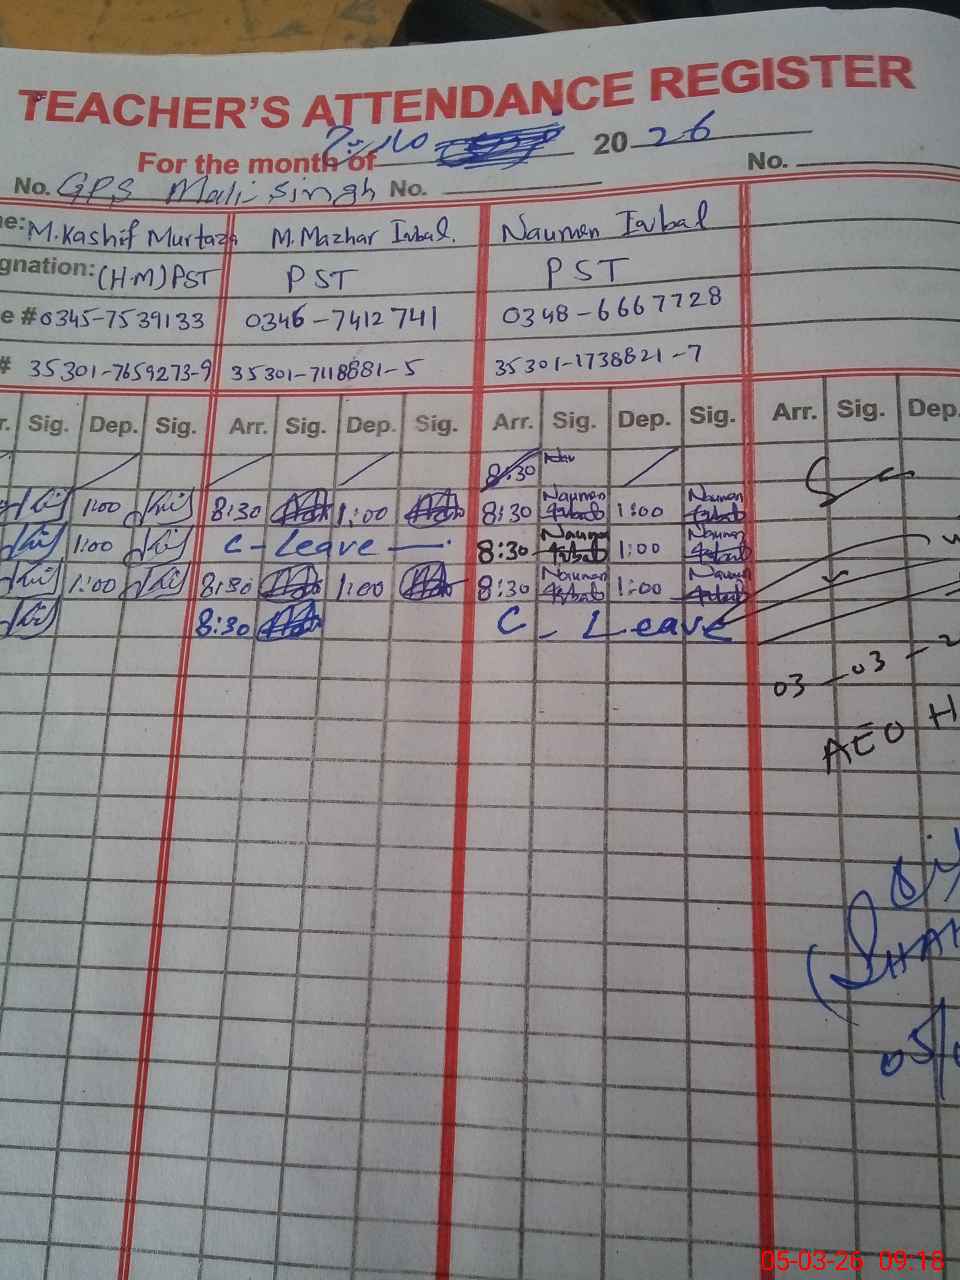 TEACHER'S ATTENDANCE REGISTER
For the month of مارچ 2026
No. GPS Mali Singh No. No.
ne: M.Kashif Murtaza M.Mazhar Iqbal. Nauman Iqbal
gnation: (H.M) PST PST PST
e # 0345-7539133 0346-7412741 0348-6667728
# 35301-7659273-9 35301-7118881-5 35301-1738821-7
r. Sig. Dep. Sig. Arr. Sig. Dep. Sig. Arr. Sig. Dep. Sig. Arr. Sig. Dep.
8:30 Nau
1:00 8:30 1:00 8:30 Nauman Iqbal 1:00 Nauman Iqbal
1:00 C-Leave 8:30 Nauman Iqbal 1:00 Nauman Iqbal
1:00 8:30 1:00 8:30 Nauman Iqbal 1:00 Nauman Iqbal
8:30 C - Leave
03-03-2
AEO H
(SHAH
05/0
05-03-26 09:18